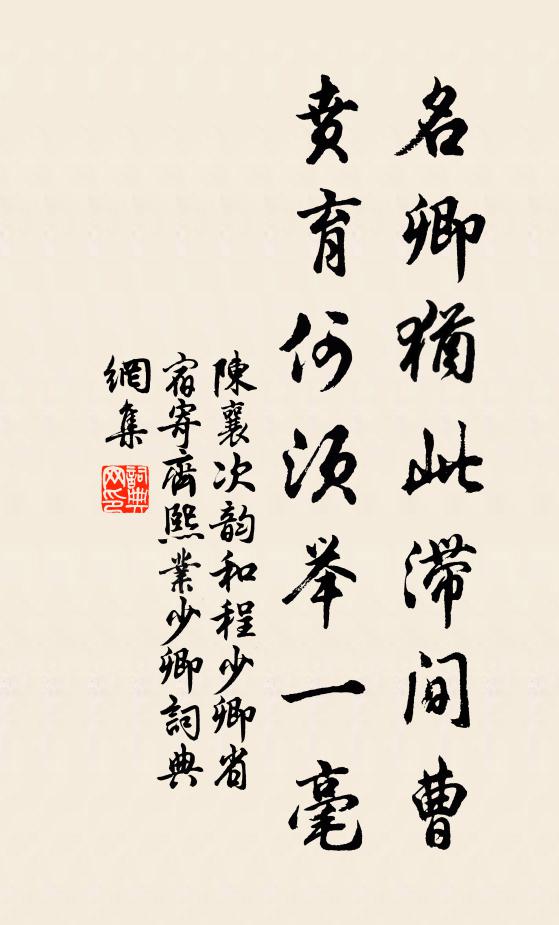 名卿猶此滞间曹
賁育何須举一毫
陳襄次韵和程少卿省
宿寄齊熙業少卿詞典
網集
詞典
网印